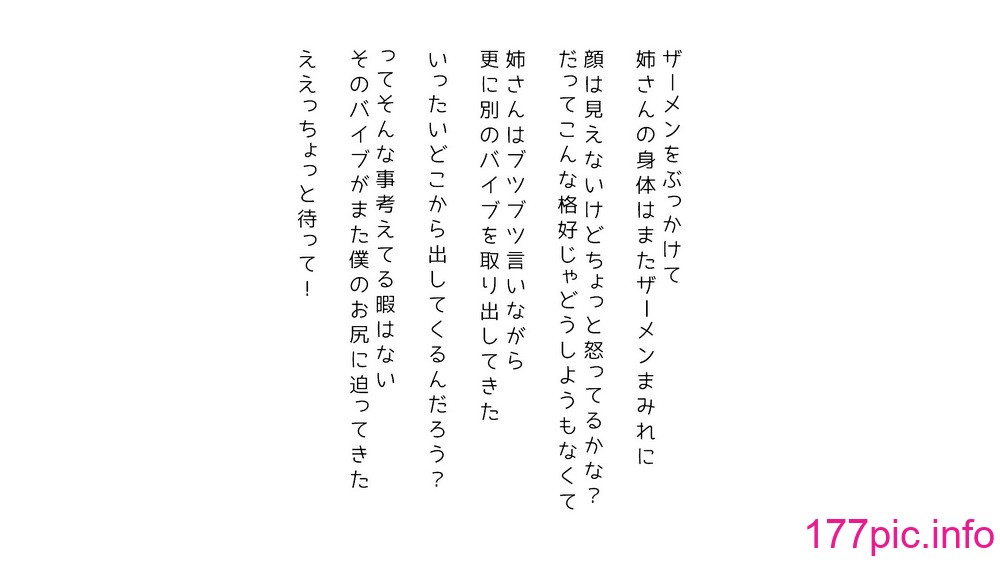 ザーメンをぶっかけて
姉さんの身体はまたザーメンまみれに
顔は見えないけどちょっと怒ってるかな？
だってこんな格好じゃどうしようもなくて
姉さんはブツブツ言いながら
更に別のバイブを取り出してきた
いったいどこから出してくるんだろう？
ってそんな事考えてる暇はない
そのバイブがまた僕のお尻に迫ってきた
ええっちょっと待って！
177pic.info